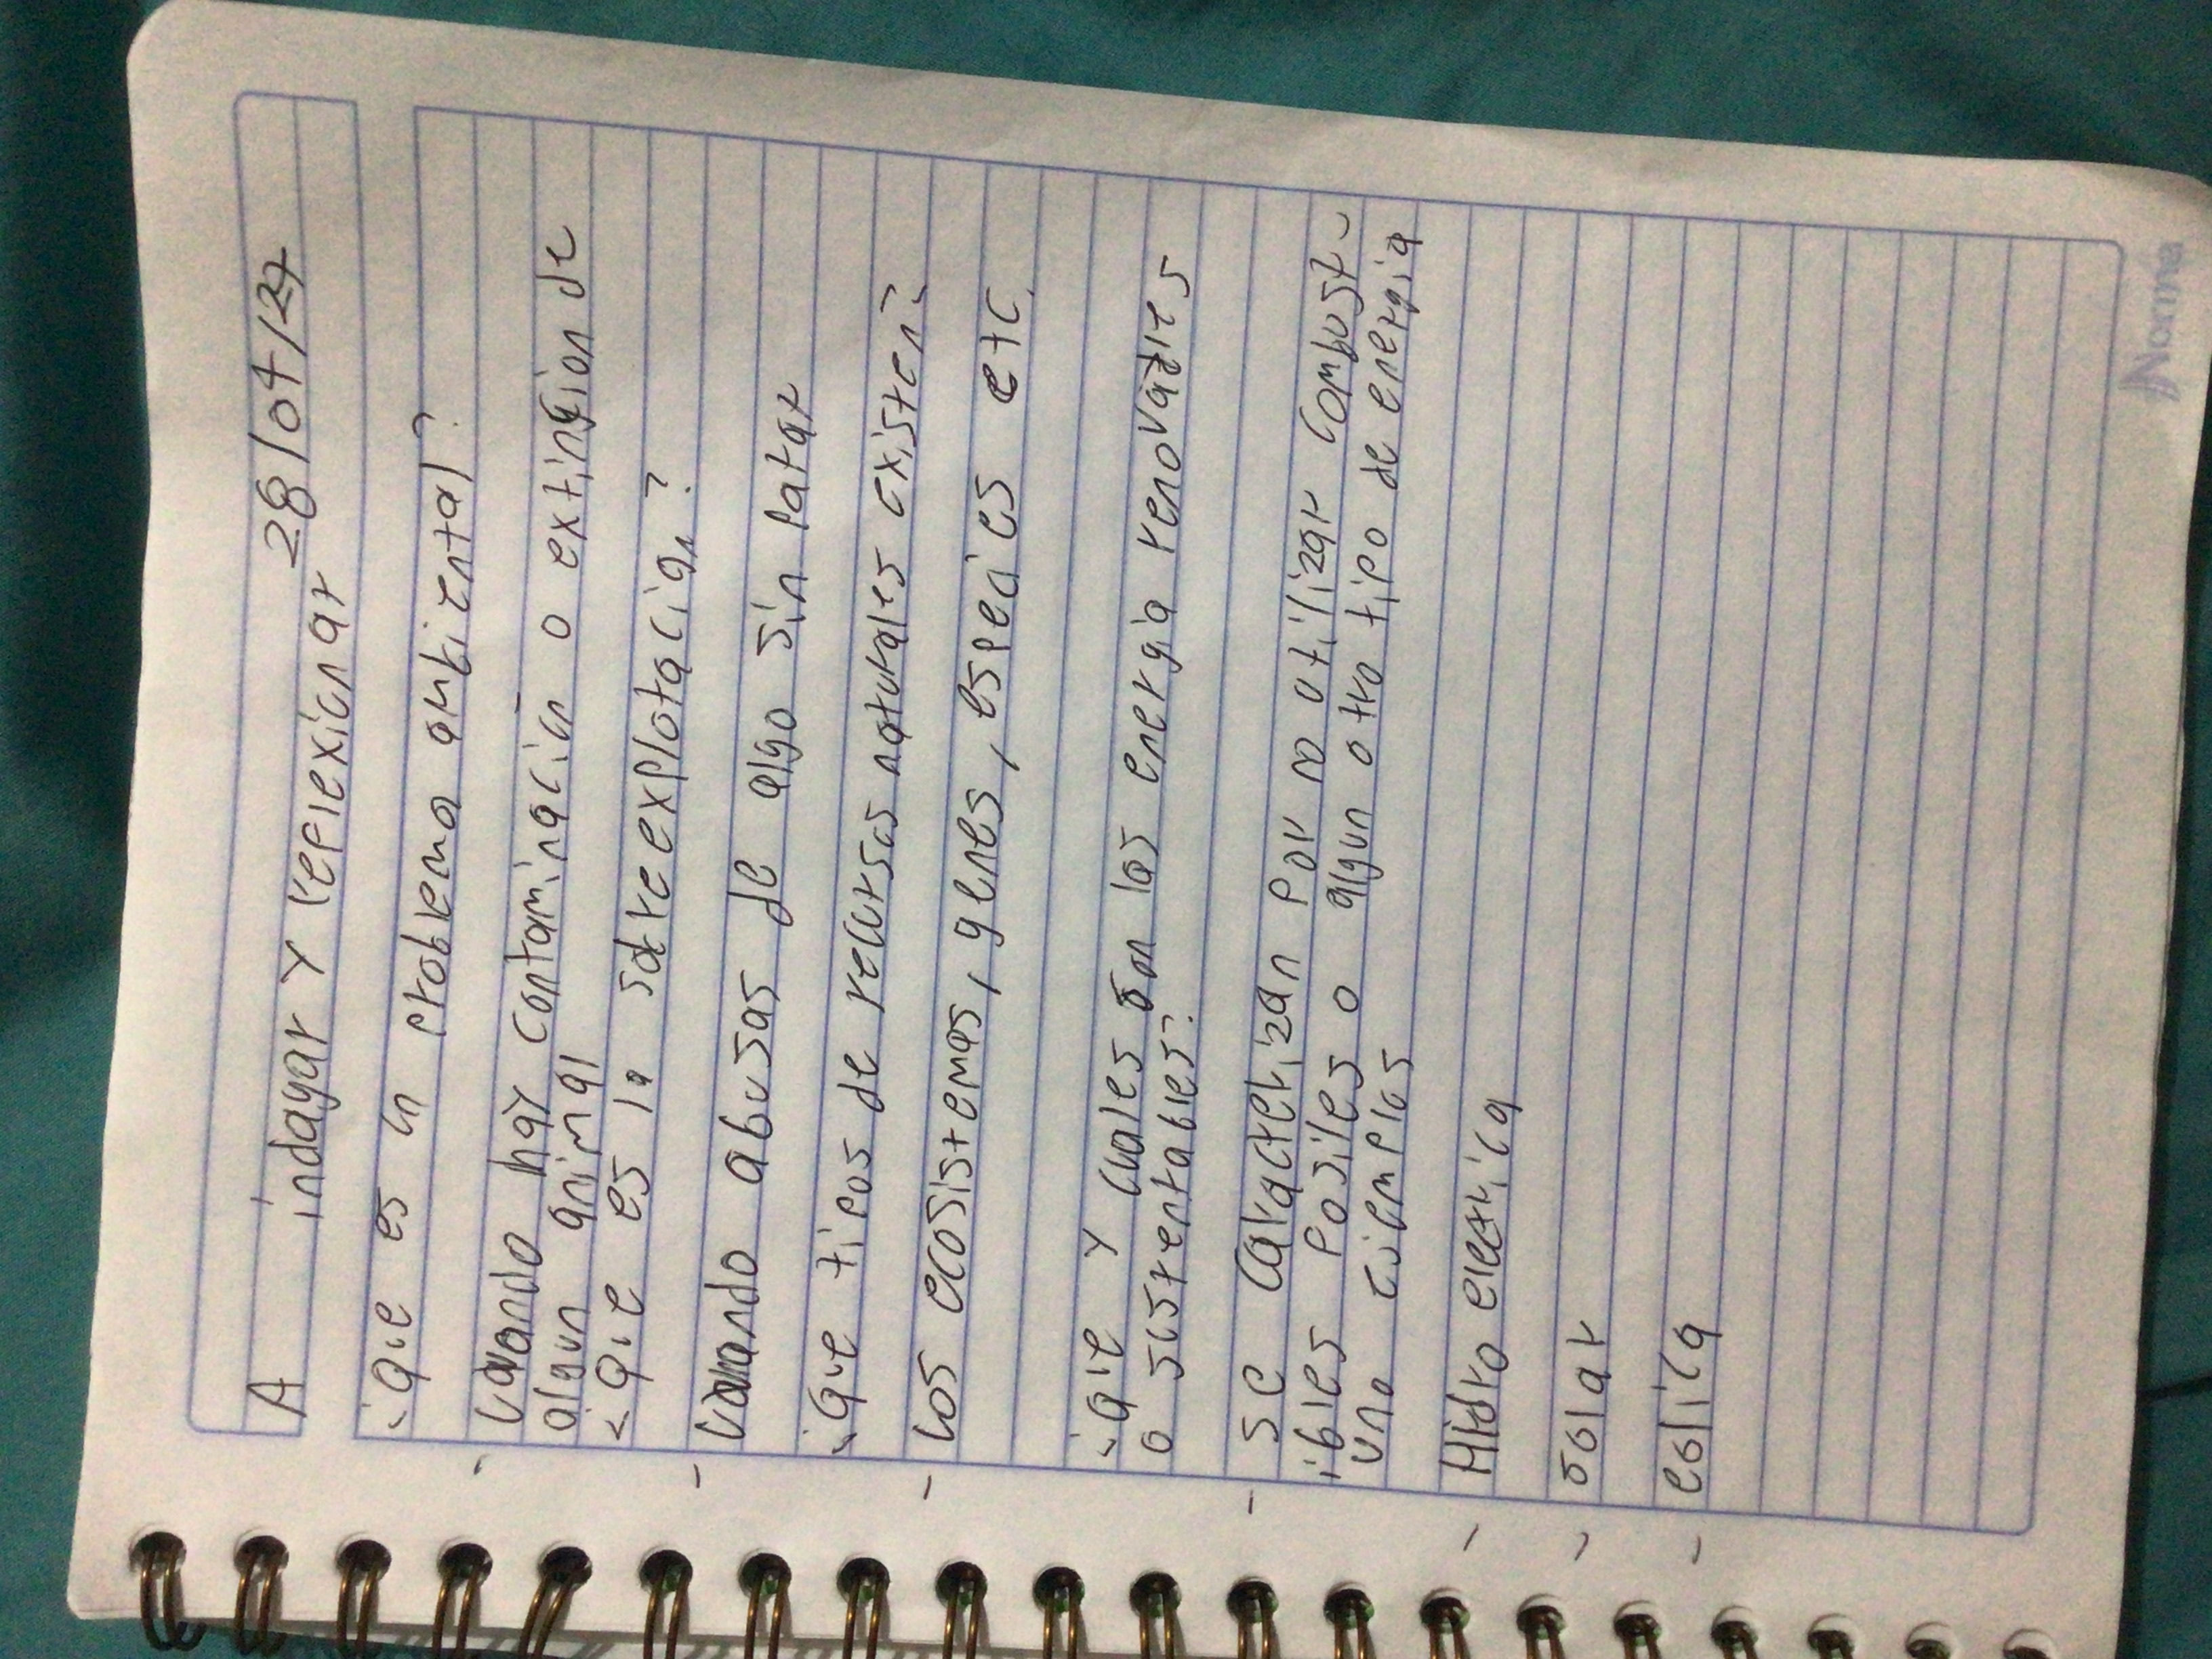 A indagar y reflexionar 28/04/27
¿Que es un problema ambiental?
- Cuando hay contaminación o extingion de
algun animal
¿Que es la sobreexplotación?
- Cuando abusas de algo sin parar
¿Que tipos de recursos naturales existen?
- Los ecosistemas, genes, especies etc.
¿Que y cuales son las energia renovables
o sustentables?
- Se caracterizan por no utilizar combust-
ibles fosiles o algun otro tipo de energia
una ejemplos
- Hidro electrica
- solar
- eolica
Norma